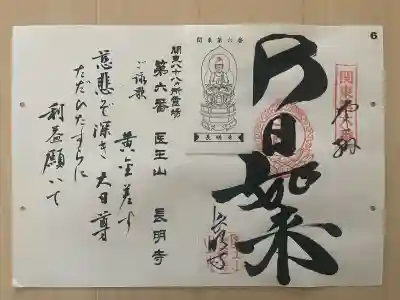 6
関東第六番
奉拝
大日如来
長明寺
関東第六番
長明寺
関東八十八ヵ所霊場
第六番 医王山 長明寺
ご詠歌
黄金差す
慈悲ぞ深き 大日尊
ただひたすらに
利益願いて